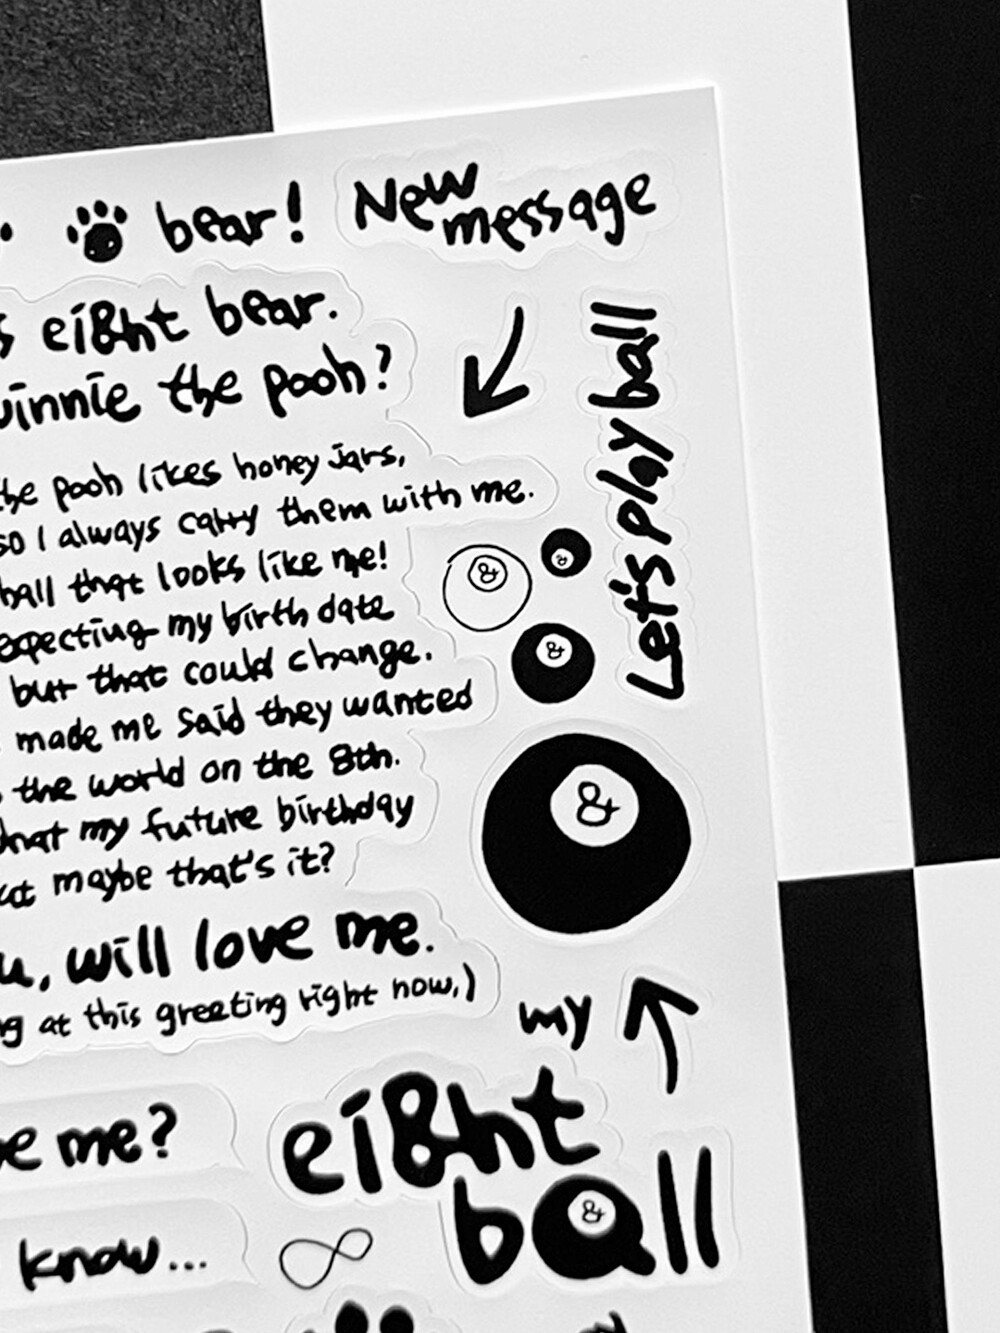 bear!
New
message
ei8ht bear.
winnie the pooh?
the pooh likes honey jars,
so I always carry them with me.
ball that looks like me!
expecting my birth date
but that could change.
made me said they wanted
the world on the 8th.
that my future birthday
maybe that's it?
will love me.
at this greeting right now,)
Let's play ball
&
&
&
&
my
ei8ht
ball
&
me?
know...